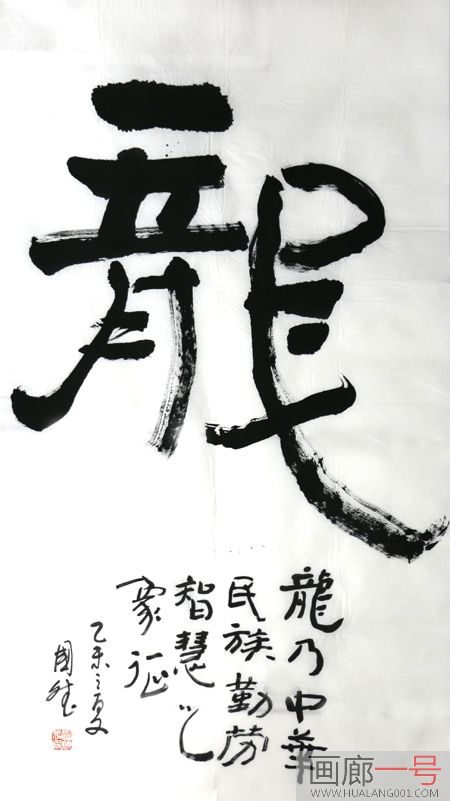 龍
龍乃中華
民族勤劳
智慧之
象征
乙未之夏
画廊一号
WWW.HUALANG001.COM